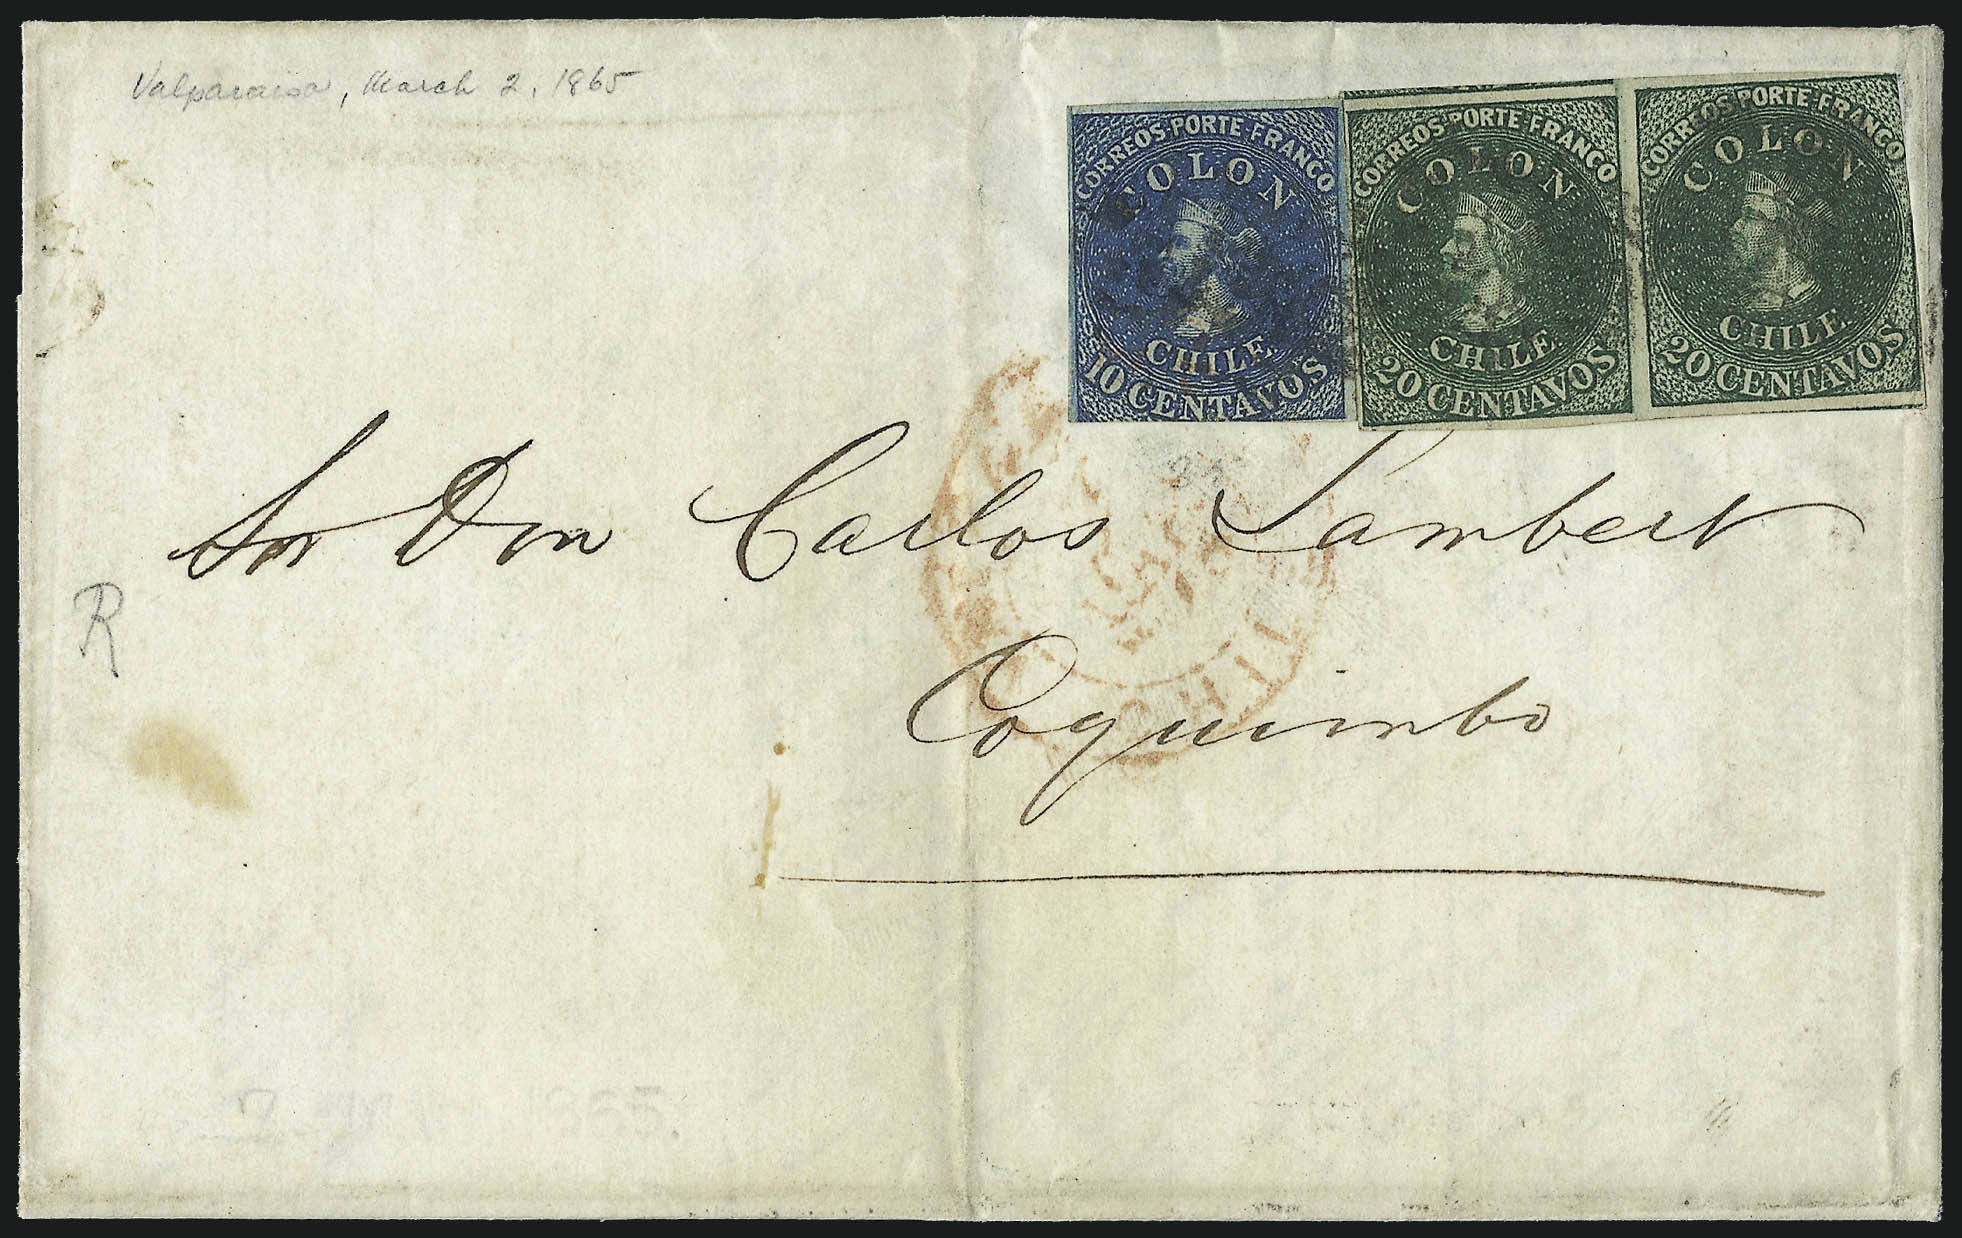 Valparaiso, March 2, 1865
CORREOS PORTE FRANCO
COLON
CHILE
10 CENTAVOS
CORREOS PORTE FRANCO
COLON
CHILE
20 CENTAVOS
CORREOS PORTE FRANCO
COLON
CHILE
20 CENTAVOS
Sor Don Carlos Lambert
R
Coquimbo
CHIL
1865